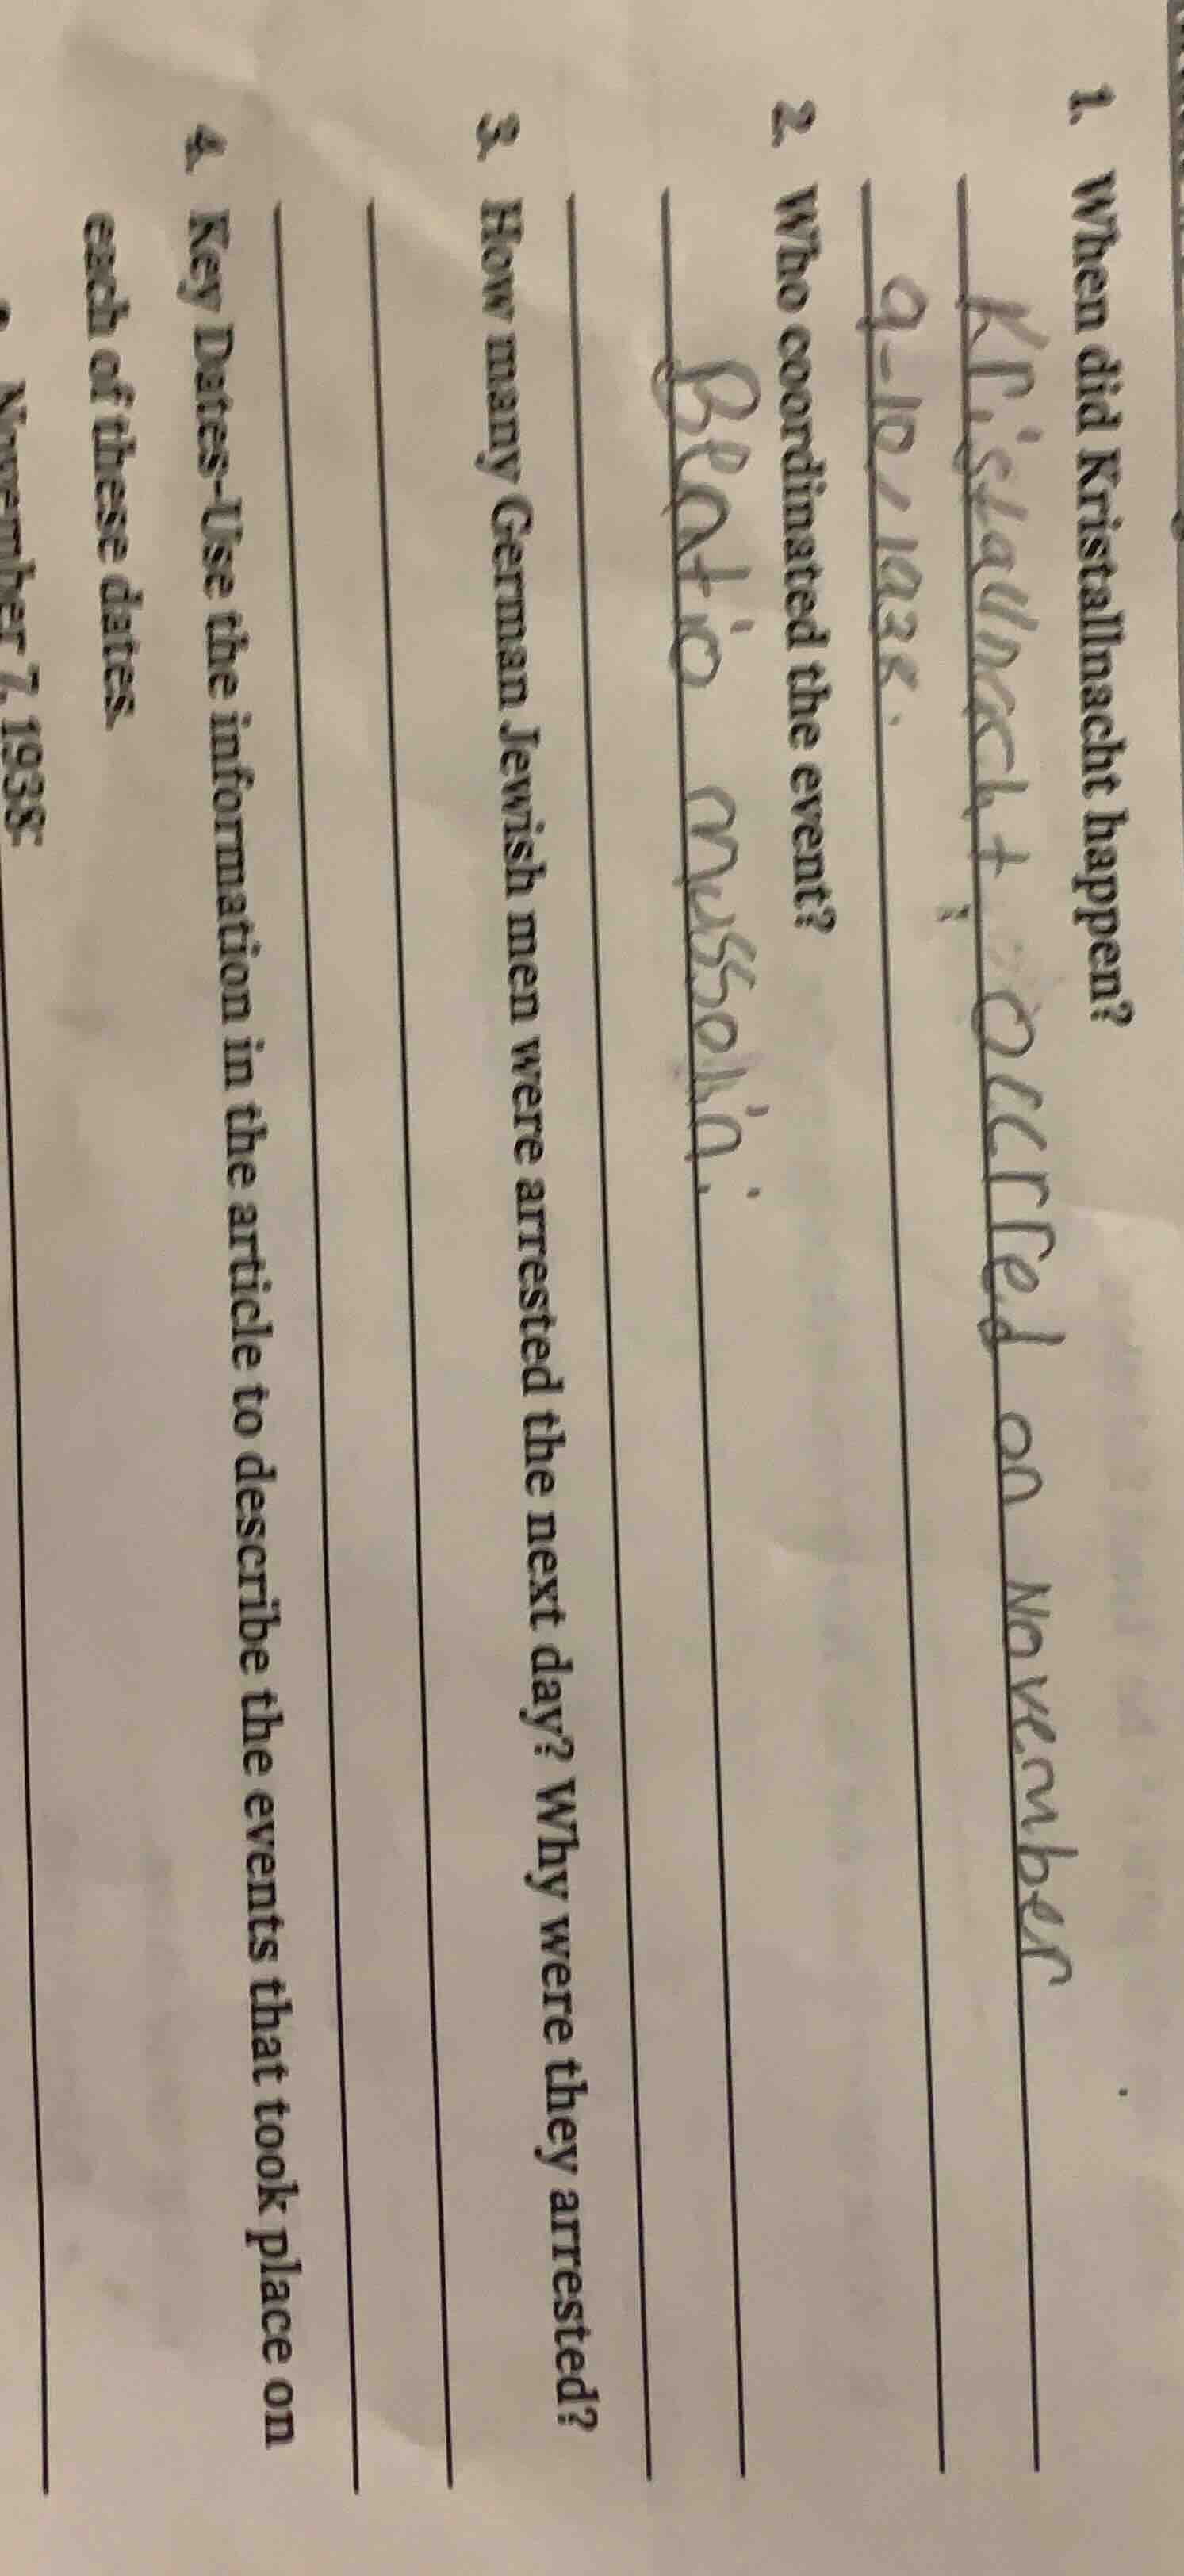 1. When did Kristallnacht happen?
Kristallnacht occrred on November
9-10, 1938.
2. Who coordinated the event?
Bentio mussolini.
3. How many German Jewish men were arrested the next day? Why were they arrested?
4. Key Dates-Use the information in the article to describe the events that took place on
each of these dates.
November 7, 1938: